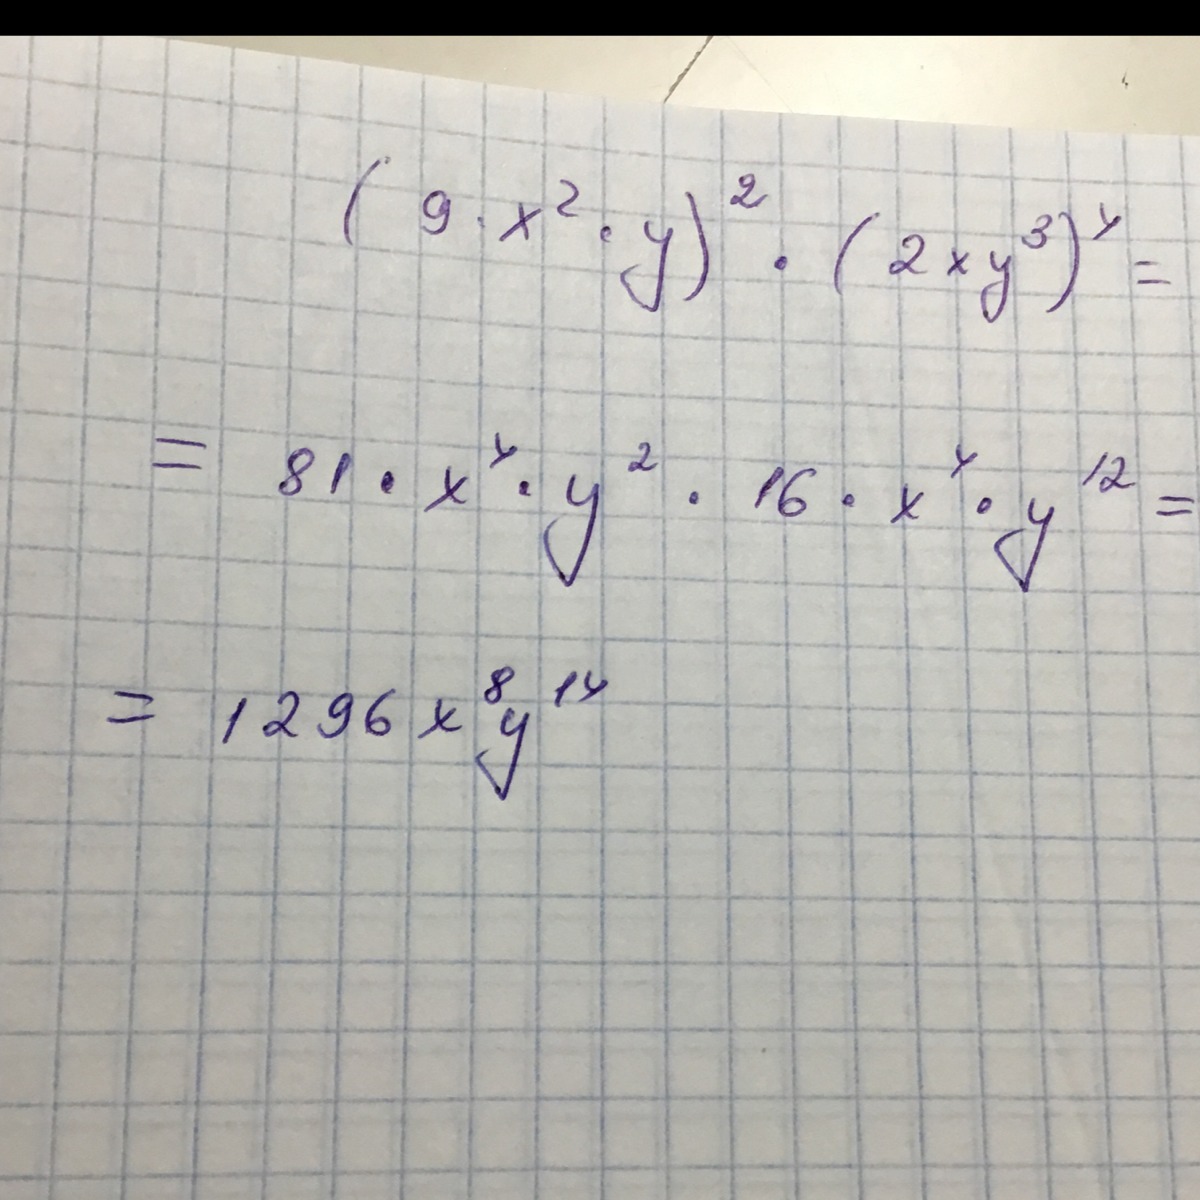 (9·x²·y)²·(2xy³)⁴=
=81·x⁴·y²·16·x⁴·y¹²=
=1296x⁸y¹⁴